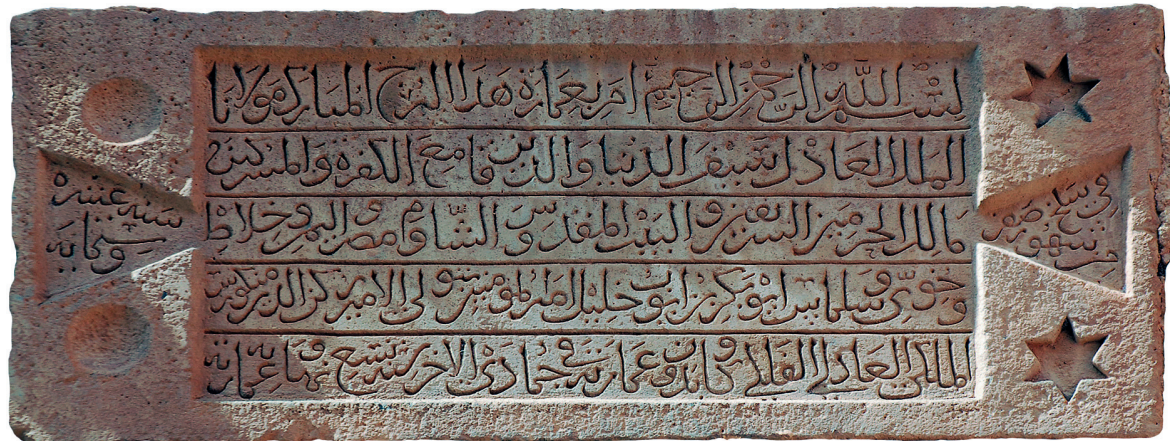 بسم الله الرحمن الرحيم امر بعمارة هذا البرج المبارك مولانا
الملك العادل سيف الدنيا والدين قامع الكفرة والمشركين
مالك الحرمين الشريفين والبيت المقدس والشام ومصر واليمن وخلاط
وخوي وسلماس ابو بكر بن ايوب خليل امير المؤمنين تولى الامير ركن الدين منكورس
الملكي العادلي الفلكي وكان بدو عمارته في جمادى الاخر سنة تسع ونهاية عمارته
في سلخ صفر
من شهور
سنة عشرة
وستماية